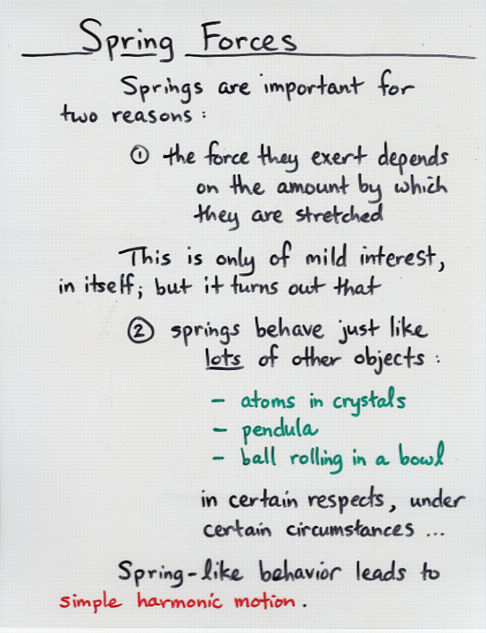 Spring Forces
Springs are important for
two reasons :
① the force they exert depends
on the amount by which
they are stretched
This is only of mild interest,
in itself; but it turns out that
② springs behave just like
lots of other objects :
– atoms in crystals
– pendula
– ball rolling in a bowl
in certain respects, under
certain circumstances ...
Spring-like behavior leads to
simple harmonic motion.